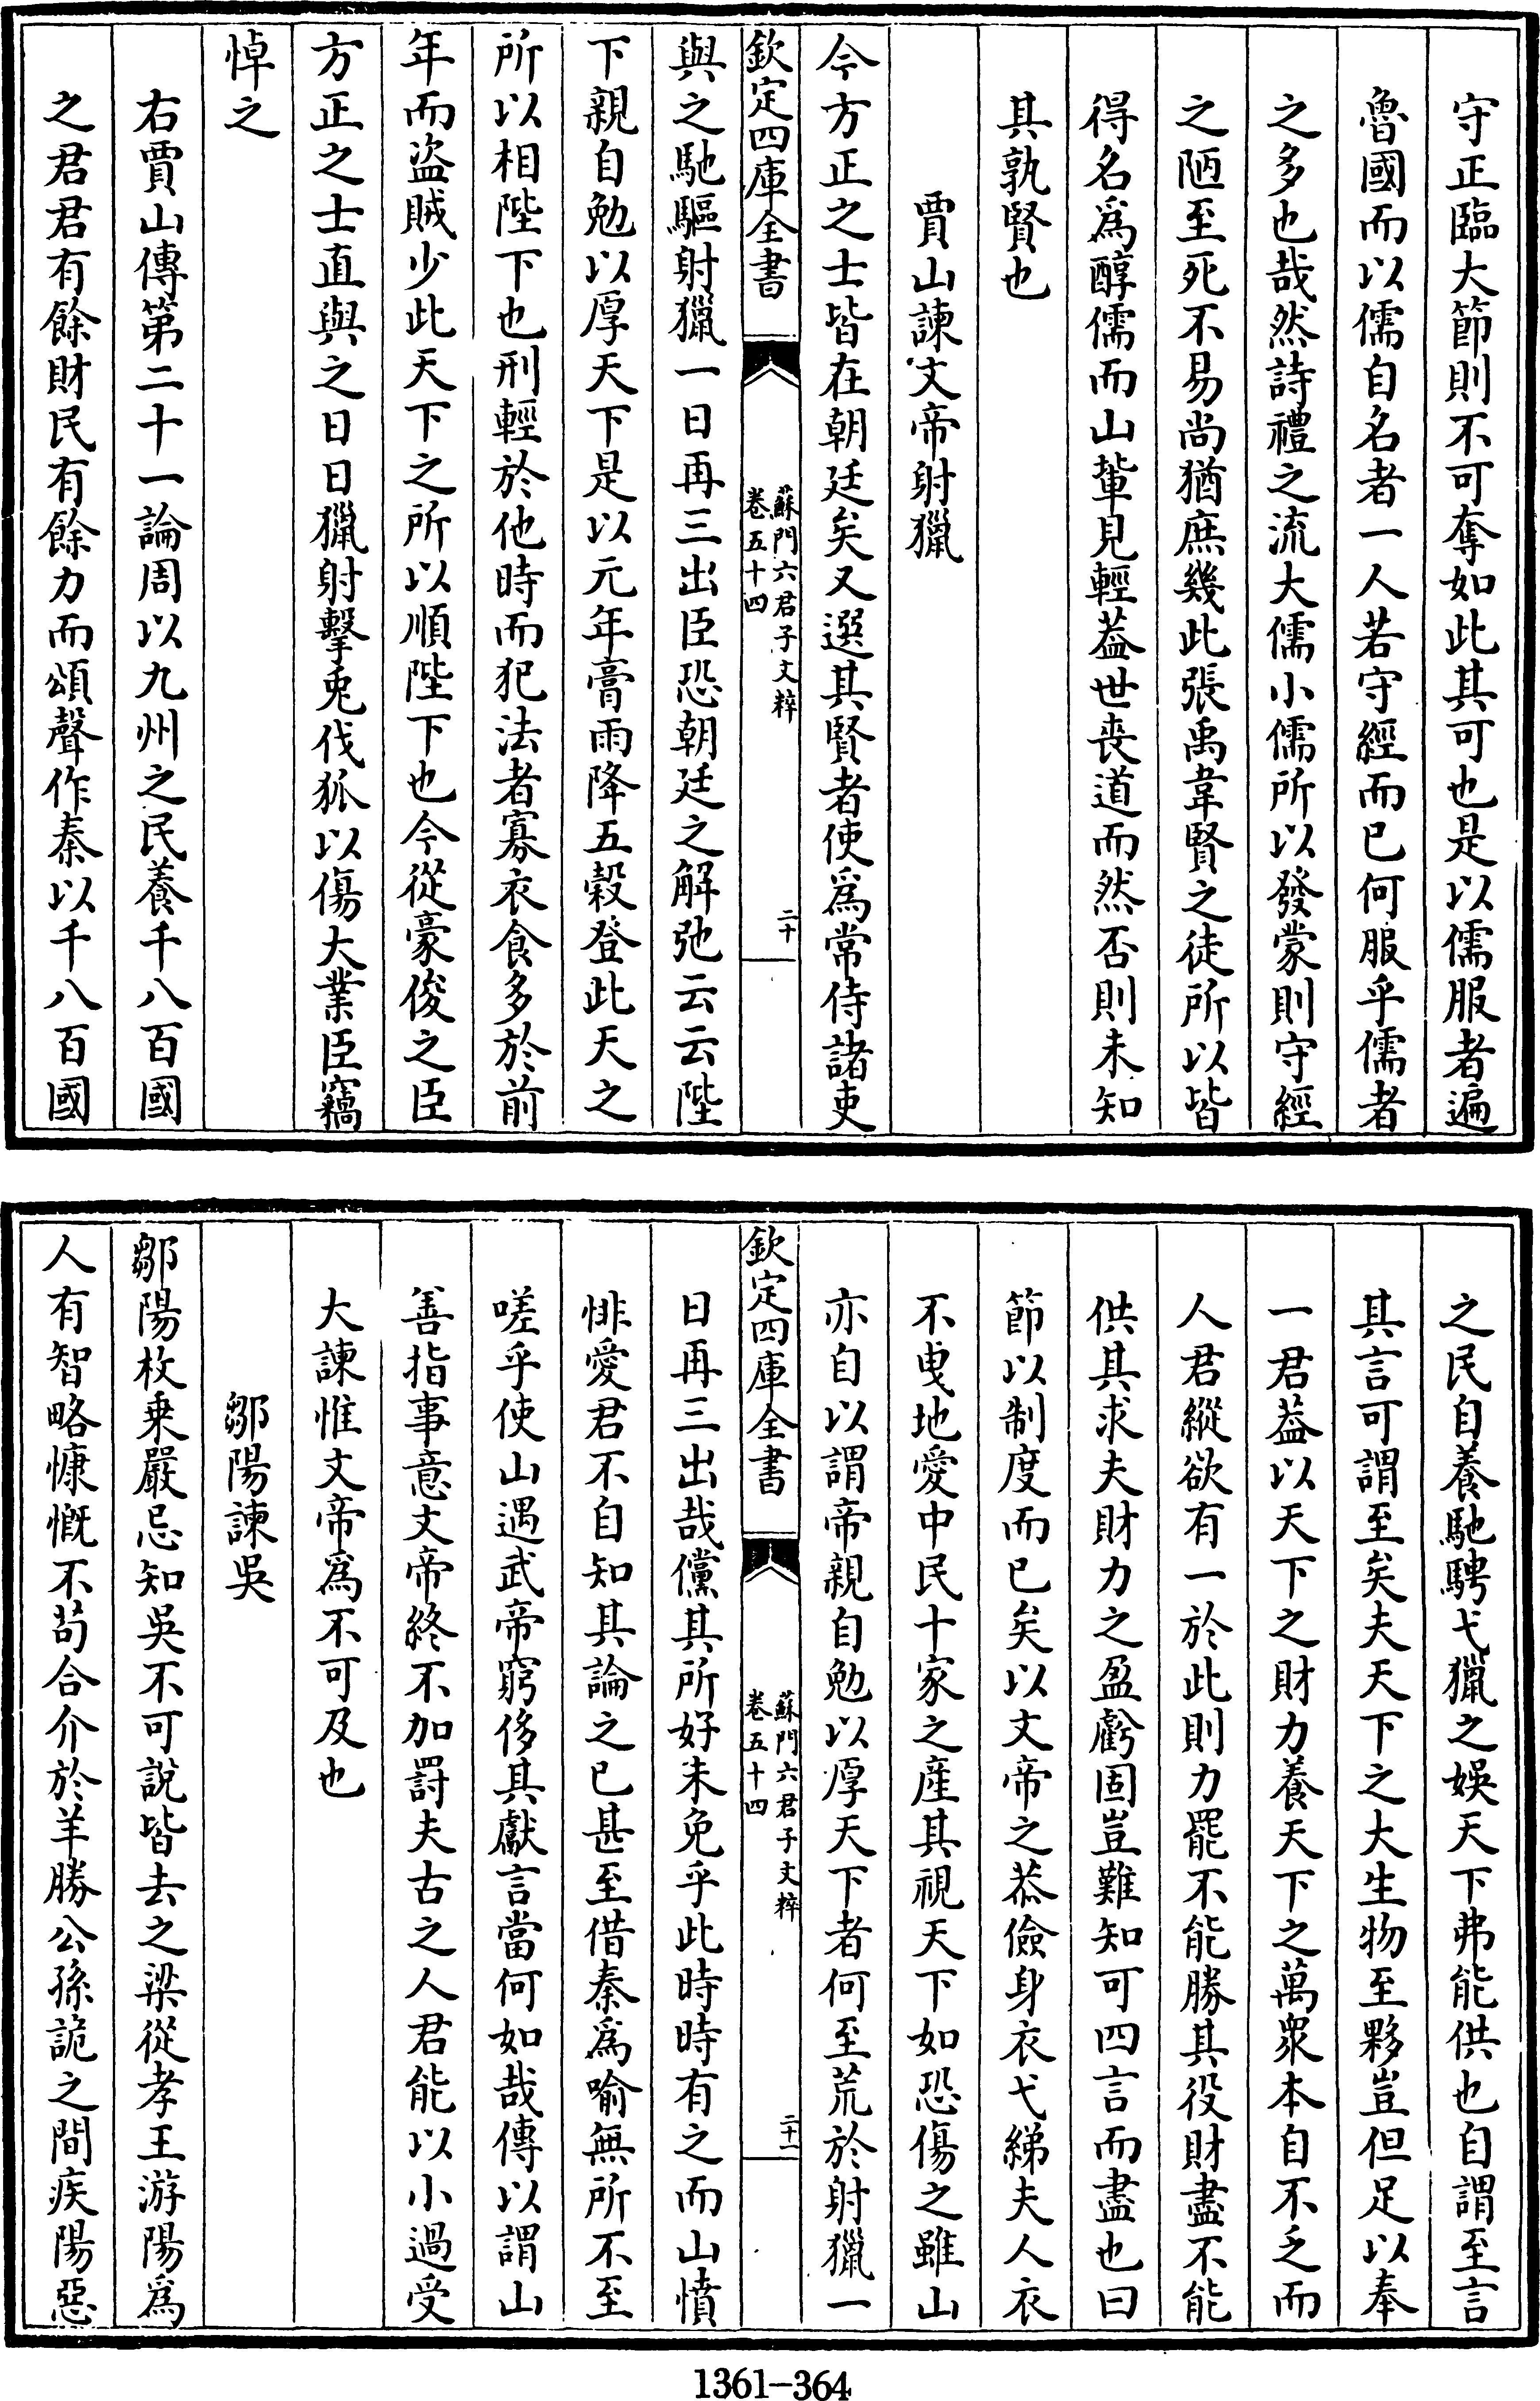 守正臨大節則不可奪如此其可也是以儒服者遍
魯國而以儒自名者一人若守經而已何服乎儒者
之多也哉然詩禮之流大儒小儒所以發蒙則守經
之陋至死不易尚猶庶幾此張禹韋賢之徒所以皆
得名爲醇儒而山輩見輕葢世喪道而然否則未知
其孰賢也
賈山諫文帝射獵
今方正之士皆在朝廷矣又選其賢者使爲常侍諸吏
欽定四庫全書
蘇門六君子文粹
卷五十四
二十
與之馳驅射獵一日再三出臣恐朝廷之解弛云云陛
下親自勉以厚天下是以元年膏雨降五穀登此天之
所以相陛下也刑輕於他時而犯法者寡衣食多於前
年而盜賊少此天下之所以順陛下也今從豪俊之臣
方正之士直與之日日獵射擊兎伐狐以傷大業臣竊
悼之
右賈山傳第二十一論周以九州之民養千八百國
之君君有餘財民有餘力而頌聲作秦以千八百國
之民自養馳騁弋獵之娛天下弗能供也自謂至言
其言可謂至矣夫天下之大生物至夥豈但足以奉
一君葢以天下之財力養天下之萬衆本自不乏而
人君縱欲有一於此則力罷不能勝其役財盡不能
供其求夫財力之盈虧固豈難知可四言而盡也曰
節以制度而已矣以文帝之恭儉身衣弋綈夫人衣
不曳地愛中民十家之產其視天下如恐傷之雖山
亦自以謂帝親自勉以厚天下者何至荒於射獵一
欽定四庫全書
蘇門六君子文粹
卷五十四
二十一
日再三出哉儻其所好未免乎此時時有之而山憤
悱愛君不自知其論之已甚至借秦爲喻無所不至
嗟乎使山遇武帝窮侈其獻言當何如哉傳以謂山
善指事意文帝終不加罸夫古之人君能以小過受
大諫惟文帝爲不可及也
鄒陽諫吳
鄒陽枚乗嚴忌知吳不可說皆去之梁從孝王游陽爲
人有智略慷慨不苟合介於羊勝公孫詭之間疾陽惡
1361-364